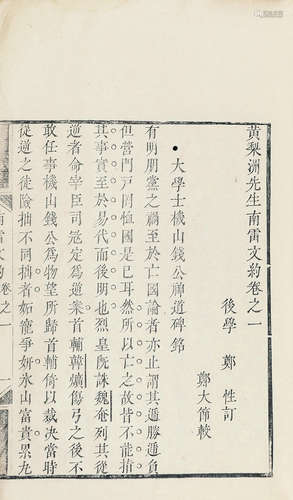 黃梨洲先生南雷文約卷之一
後學 鄭 性訂
鄭大節較
大學士機山錢公神道碑銘
有明朋黨之禍至於亡國論者亦止謂其遞勝遞負
但營門戶罔恤國是已耳然所以亡之故皆不能指
其事實至於易代而後明也烈皇旣誅魏奄列其從
逆者命宰臣司寇定為逆案首輔韓爌傷弓之後不
敢任事機山錢公為物望所歸首輔倚以裁決當時
從逆之徒陰拙不同拙者妬寵爭妍氷山富貴累九
南雷文約 卷之一 一